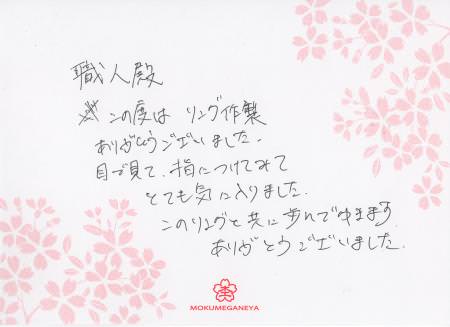 職人殿
この度は リング作製
ありがとうございました。
目で見て、指につけてみて
とても気に入りました。
このリングと共に歩んでゆきます。
ありがとうございました。
MOKUMEGANEYA